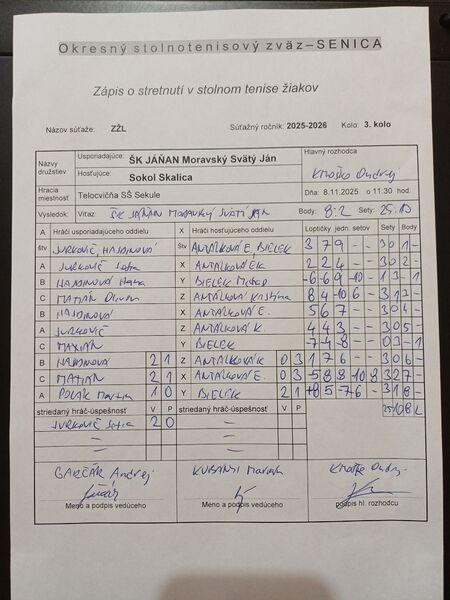 Okresný stolnotenisový zväz–SENICA
Zápis o stretnutí v stolnom tenise žiakov
Názov súťaže: ZŽL Súťažný ročník: 2025-2026 Kolo: 3. kolo
Názvy družstiev Usporiadajúce: ŠK JÁŇAN Moravský Svätý Ján Hlavný rozhodca
Hosťujúce: Sokol Skalica Kmoško Ondrej
Hracia miestnosť Telocvičňa SŠ Sekule Dňa: 8.11.2025 o 11:30 hod.
Výsledok: Víťaz: ŠK JÁŇAN MORAVSKÝ SVÄTÝ JÁN Body: 8:2 Sety: 25:10
A Hráči usporiadajúceho oddielu X Hráči hosťujúceho oddielu Loptičky jedn. setov Sety Body
štv JURKOVIČ, HAJDINOVÁ štv ANTÁLKOVÁ E, BIELEK 3 7 9 - - 3 0 1 -
A JURKOVIČ X ANTÁLKOVÁ 2 2 4 - - 3 0 2 -
B HAJDINOVÁ Y BIELEK -6 -6 9 -10 - 1 3 - 1
C MATIÁN Z ANTÁLKOVÁ Kristína 8 4 -10 6 - 3 1 3 -
B HAJDINOVÁ X ANTÁLKOVÁ E. 5 6 7 - - 3 0 4 -
A JURKOVIČ Z ANTÁLKOVÁ K 4 4 3 - - 3 0 5 -
C Y BIELEK -7 -4 -8 - - 0 3 - 1
B HAJDINOVÁ 2 1 Z ANTÁLKOVÁ K 0 3 1 7 6 - - 3 0 6 -
C MATIÁN 2 1 X ANTÁLKOVÁ E. 0 3 -5 8 8 -10 8 3 2 7 -
A POLÁK Martin 1 0 Y BIELEK 2 1 +8 5 -7 6 - 3 1 8 -
striedaný hráč-úspešnosť V P striedaný hráč-úspešnosť V P 25 10 8 2
JURKOVIČ Sofia 2 0
GARČÁR Andrej Kmoško Ondrej
Meno a podpis vedúceho Meno a podpis vedúceho podpis hl. rozhodcu